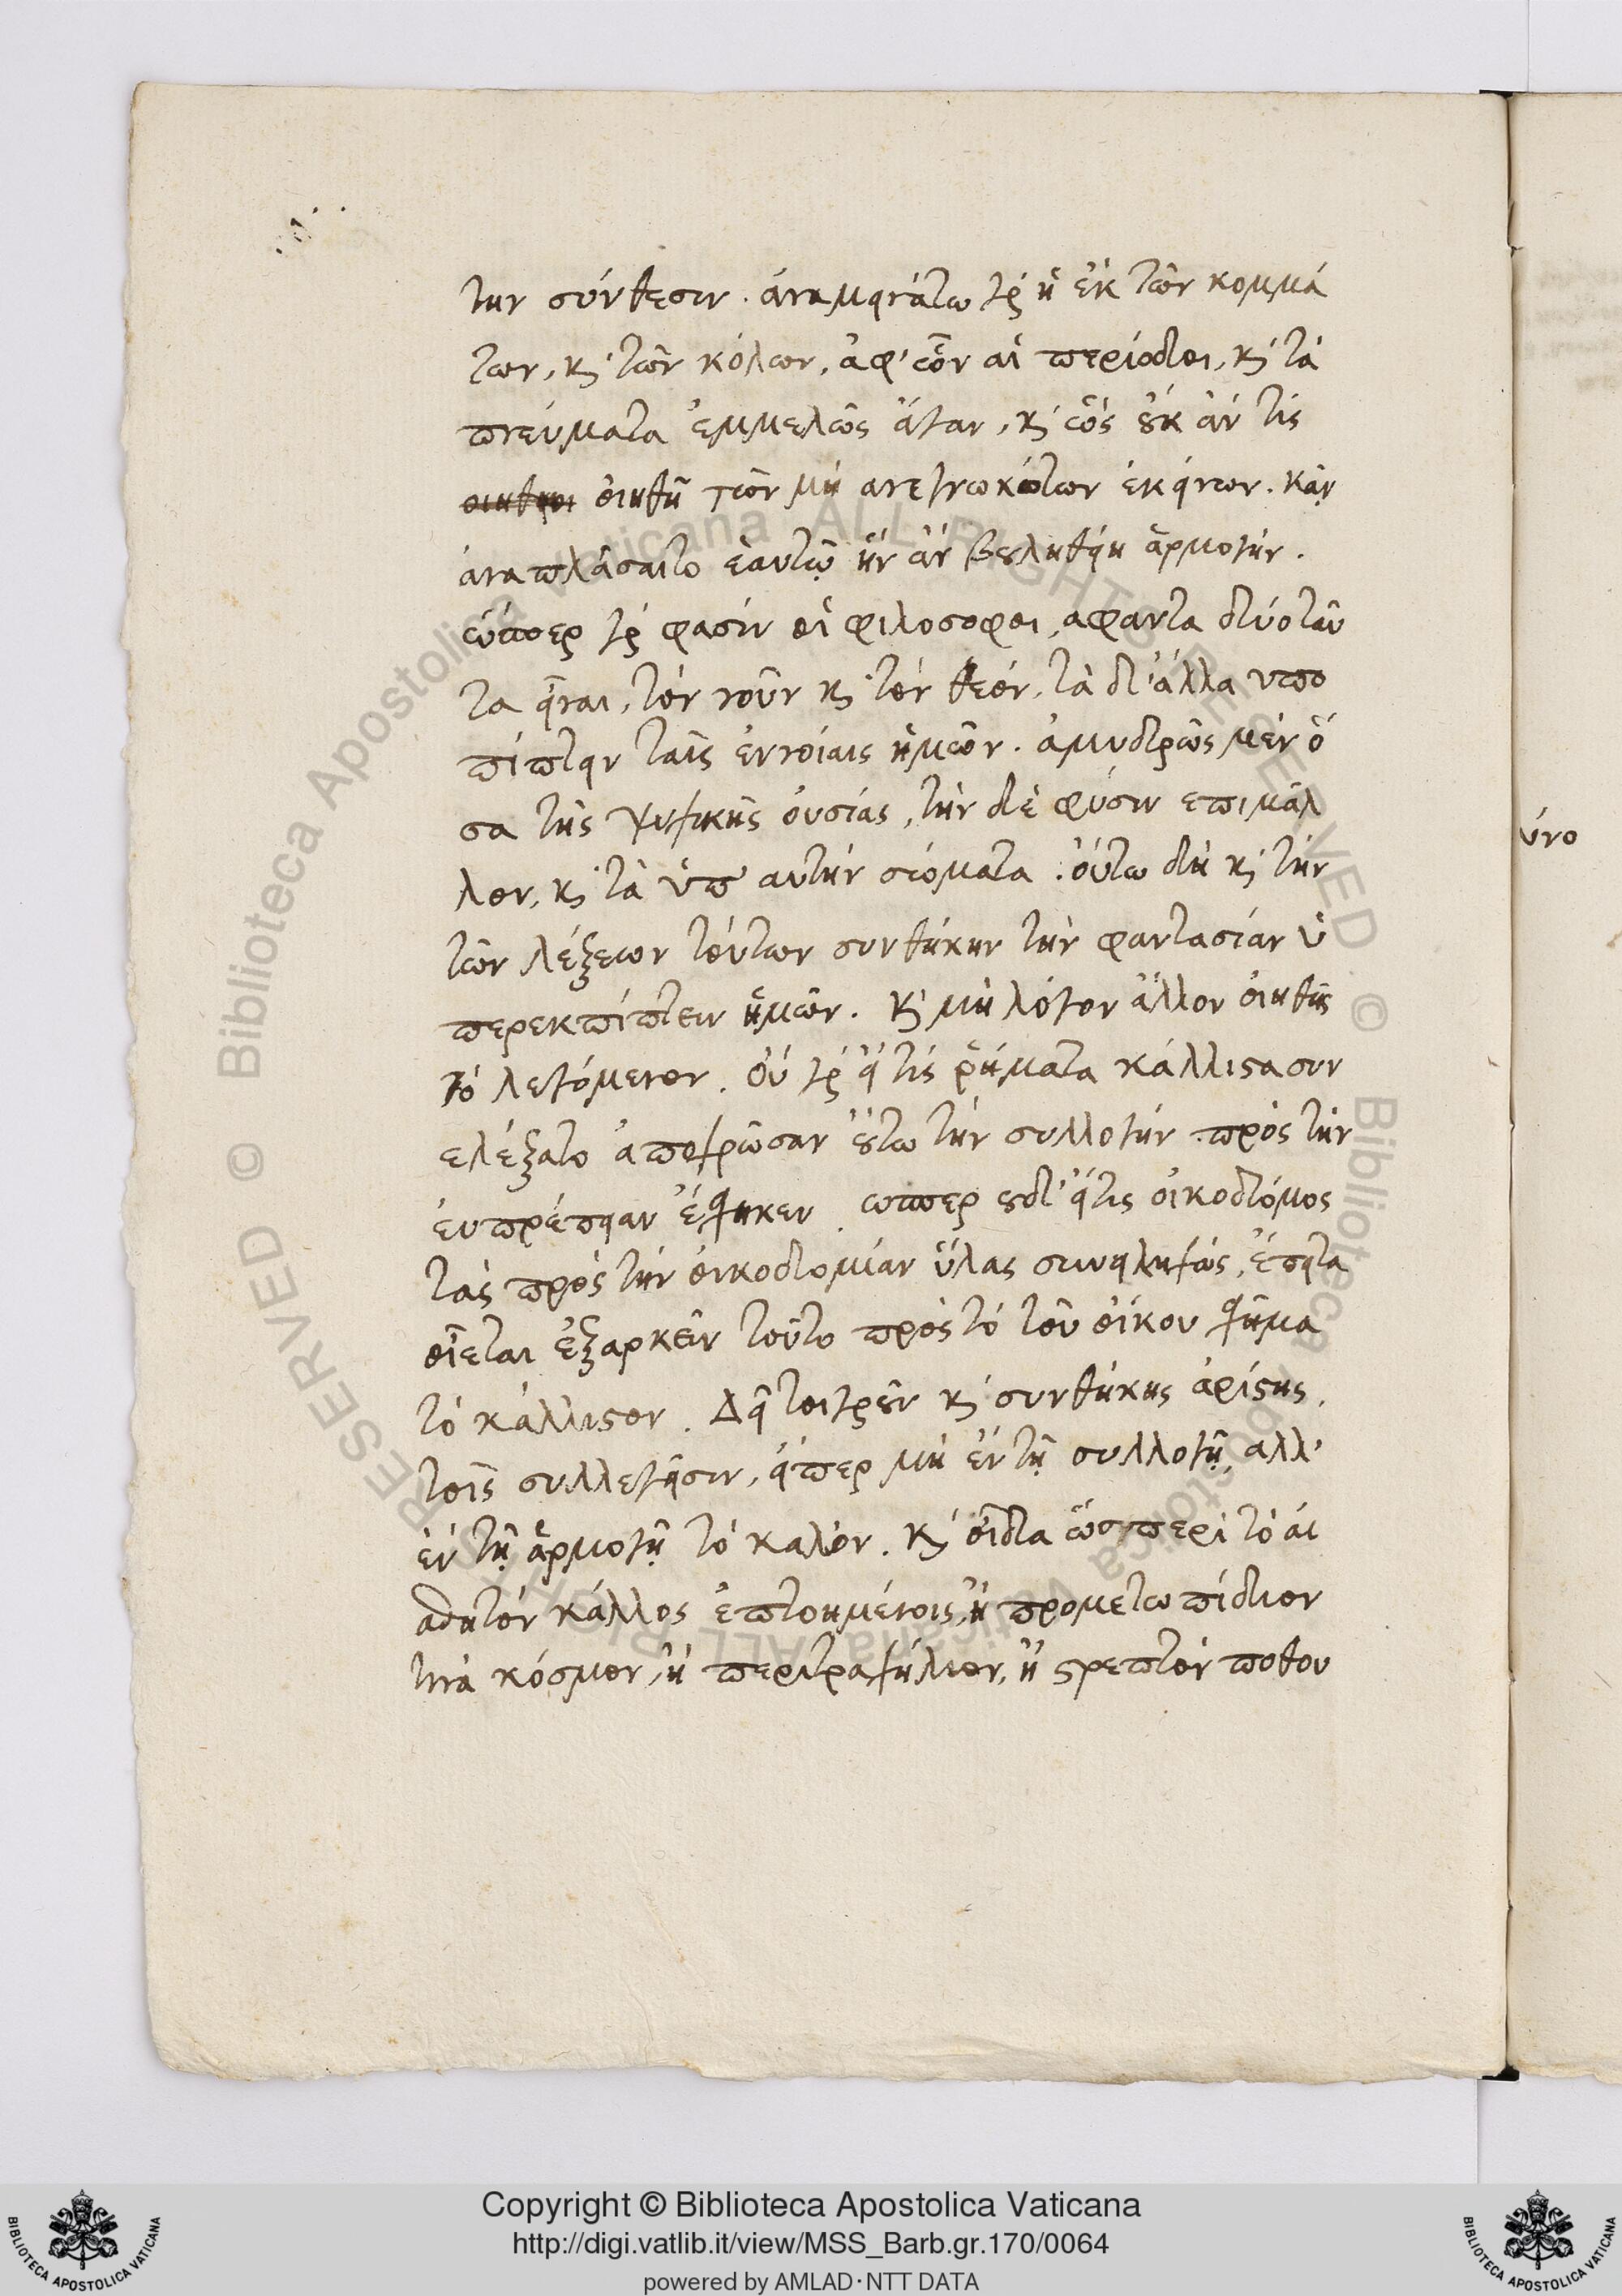 την σύνθεσιν. ἀναμεινάτω γὰρ ἡ ἐκ τῶν κομμά
των, καὶ τῶν κόλων, ἀφ' ὧν αἱ περίοδοι, καὶ τὰ
πνεύματα ἐμμελῶς ἄγαν, καὶ ὡς οὐκ ἄν τις
οἰηθῆ τῶν μὴ ανεγνωκότων ἐκείνων. κἂν
ἀναπλάσαιτο ἑαυτῷ ἣν ἂν βουληθείη ἁρμογήν.
ὥσπερ γὰρ φασὶν οἱ φιλοσοφοι, αφαντα δύο ταῦ
τα εἶναι, τὸν νοῦν καὶ τὸν θεόν, τὰ δ' ἄλλα υπο
πίπτειν ταῖς ἐννοίαις ἡμῶν. ἀμυδρῶς μὲν ὅ
σα τῆς ψυχικῆς ὀυσίας, τὴν δὲ φύσιν επιμᾶλ
λον, καὶ τὰ ὑπ αυτὴν σώματα. ὅυτω δὴ καὶ τὴν
τῶν λέξεων τόυτων συνθήκην τὴν φαντασίαν ὑ
περεκπίπτειν ἡμῶν. καὶ μὴ λόγον ἄλλον ὀιηθῆς
τὸ λεγόμενον. ὀυ γὰρ εἴ τις ῥήματα κάλλιστα συν
ελέξατο ἀποχρῶσαν οὕτω τὴν συλλογὴν πρὸς τὴν
ἐυπρέπειαν ἔσχηκεν. ωσπερ ουδ' εἴ τις ὀικοδόμος
τὰς πρὸς τὴν ὀικοδομίαν ὕλας συνειληχώς, ἔπειτα
ὀίεται ἐξαρκεῖν τοῦτο πρὸς τὸ τοῦ ὀίκου σχῆμα
τὸ κάλλιστον. Δεῖ τοιγαροῦν καὶ συνθήκης ἀρίστης,
τοῖς συλλεγεῖσιν, εἴπερ μὴ ἐν τῇ συλλογῇ, αλλ'
ἐν τῇ ἁρμογῇ τὸ καλόν. καὶ ὀίδα ὥσπερ τὸ
κάλλος ἐπτοημένοις, ἢ προμετωπίδιον
τινὰ κόσμον, ἢ περιτραχήλιον, ἢ στρεπτὸν ποθου
ύνο
Copyright © Biblioteca Apostolica Vaticana
http://digi.vatlib.it/view/MSS_Barb.gr.170/0064
powered by AMLAD·NTT DATA
BIBLIOTECA APOSTOLICA VATICANA
BIBLIOTECA APOSTOLICA VATICANA